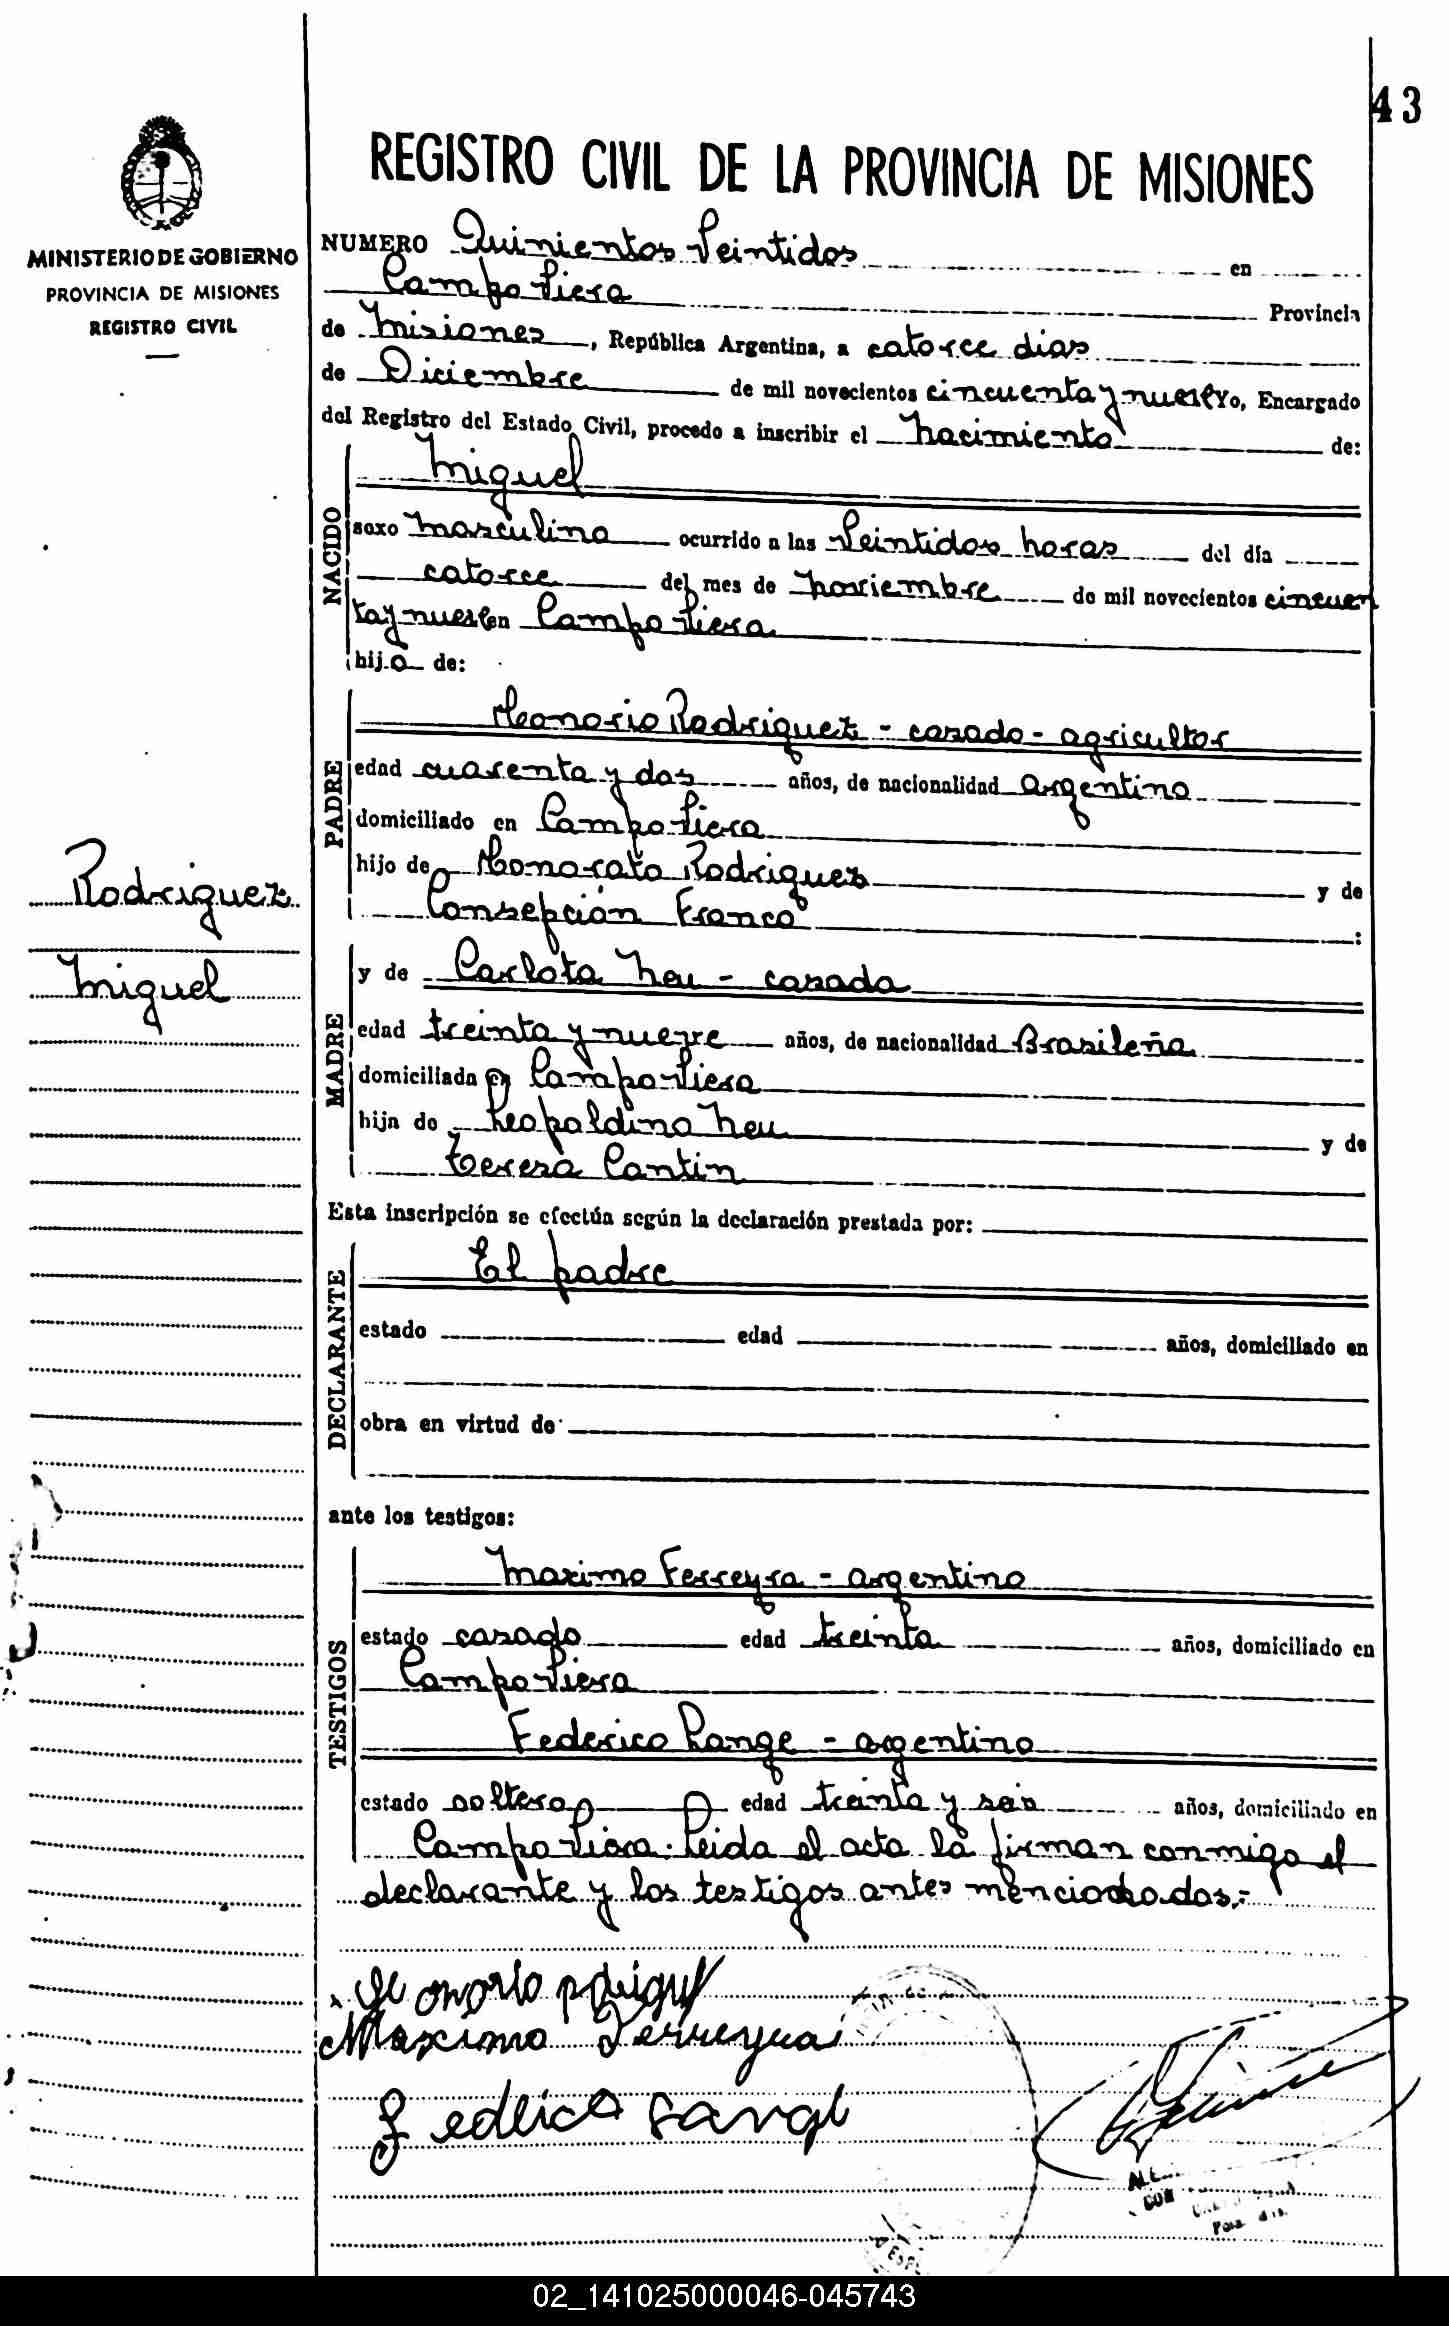 43
REGISTRO CIVIL DE LA PROVINCIA DE MISIONES
MINISTERIO DE GOBIERNO
PROVINCIA DE MISIONES
REGISTRO CIVIL
NUMERO Quinientos Veintidos en
Campo Viera Provincia
de Misiones, República Argentina, a catorce dias
de Diciembre de mil novecientos cincuenta y nueve Yo, Encargado
del Registro del Estado Civil, procedo a inscribir el Nacimiento de:
NACIDO
Miguel
sexo Masculino ocurrido a las Veintidos horas del día
catorce del mes de Noviembre de mil novecientos cincuen
ta y nueve en Campo Viera
hijo de:
PADRE
Honorio Rodriguez - casado - agricultor
edad cuarenta y dos años, de nacionalidad argentino
domiciliado en Campo Viera
hijo de Honorato Rodriguez y de
Consepción Franco :
Rodriguez
Miguel
MADRE
y de Carlota Neu - casada
edad treinta y nueve años, de nacionalidad Brasileña
domiciliada en Campo Viera
hija de Leopoldino Neu y de
Teresa Cantin
Esta inscripción se efectúa según la declaración prestada por:
DECLARANTE
El padre
estado edad años, domiciliado en
obra en virtud de
ante los testigos:
TESTIGOS
Maximo Ferreyra - argentino
estado casado edad treinta años, domiciliado en
Campo Viera
Federico Lange - argentino
estado soltero edad treinta y seis años, domiciliado en
Campo Viera. Leida el acta la firman conmigo el
declarante y los testigos antes mencionados.-
Maximo Ferreyra
02_141025000046-045743